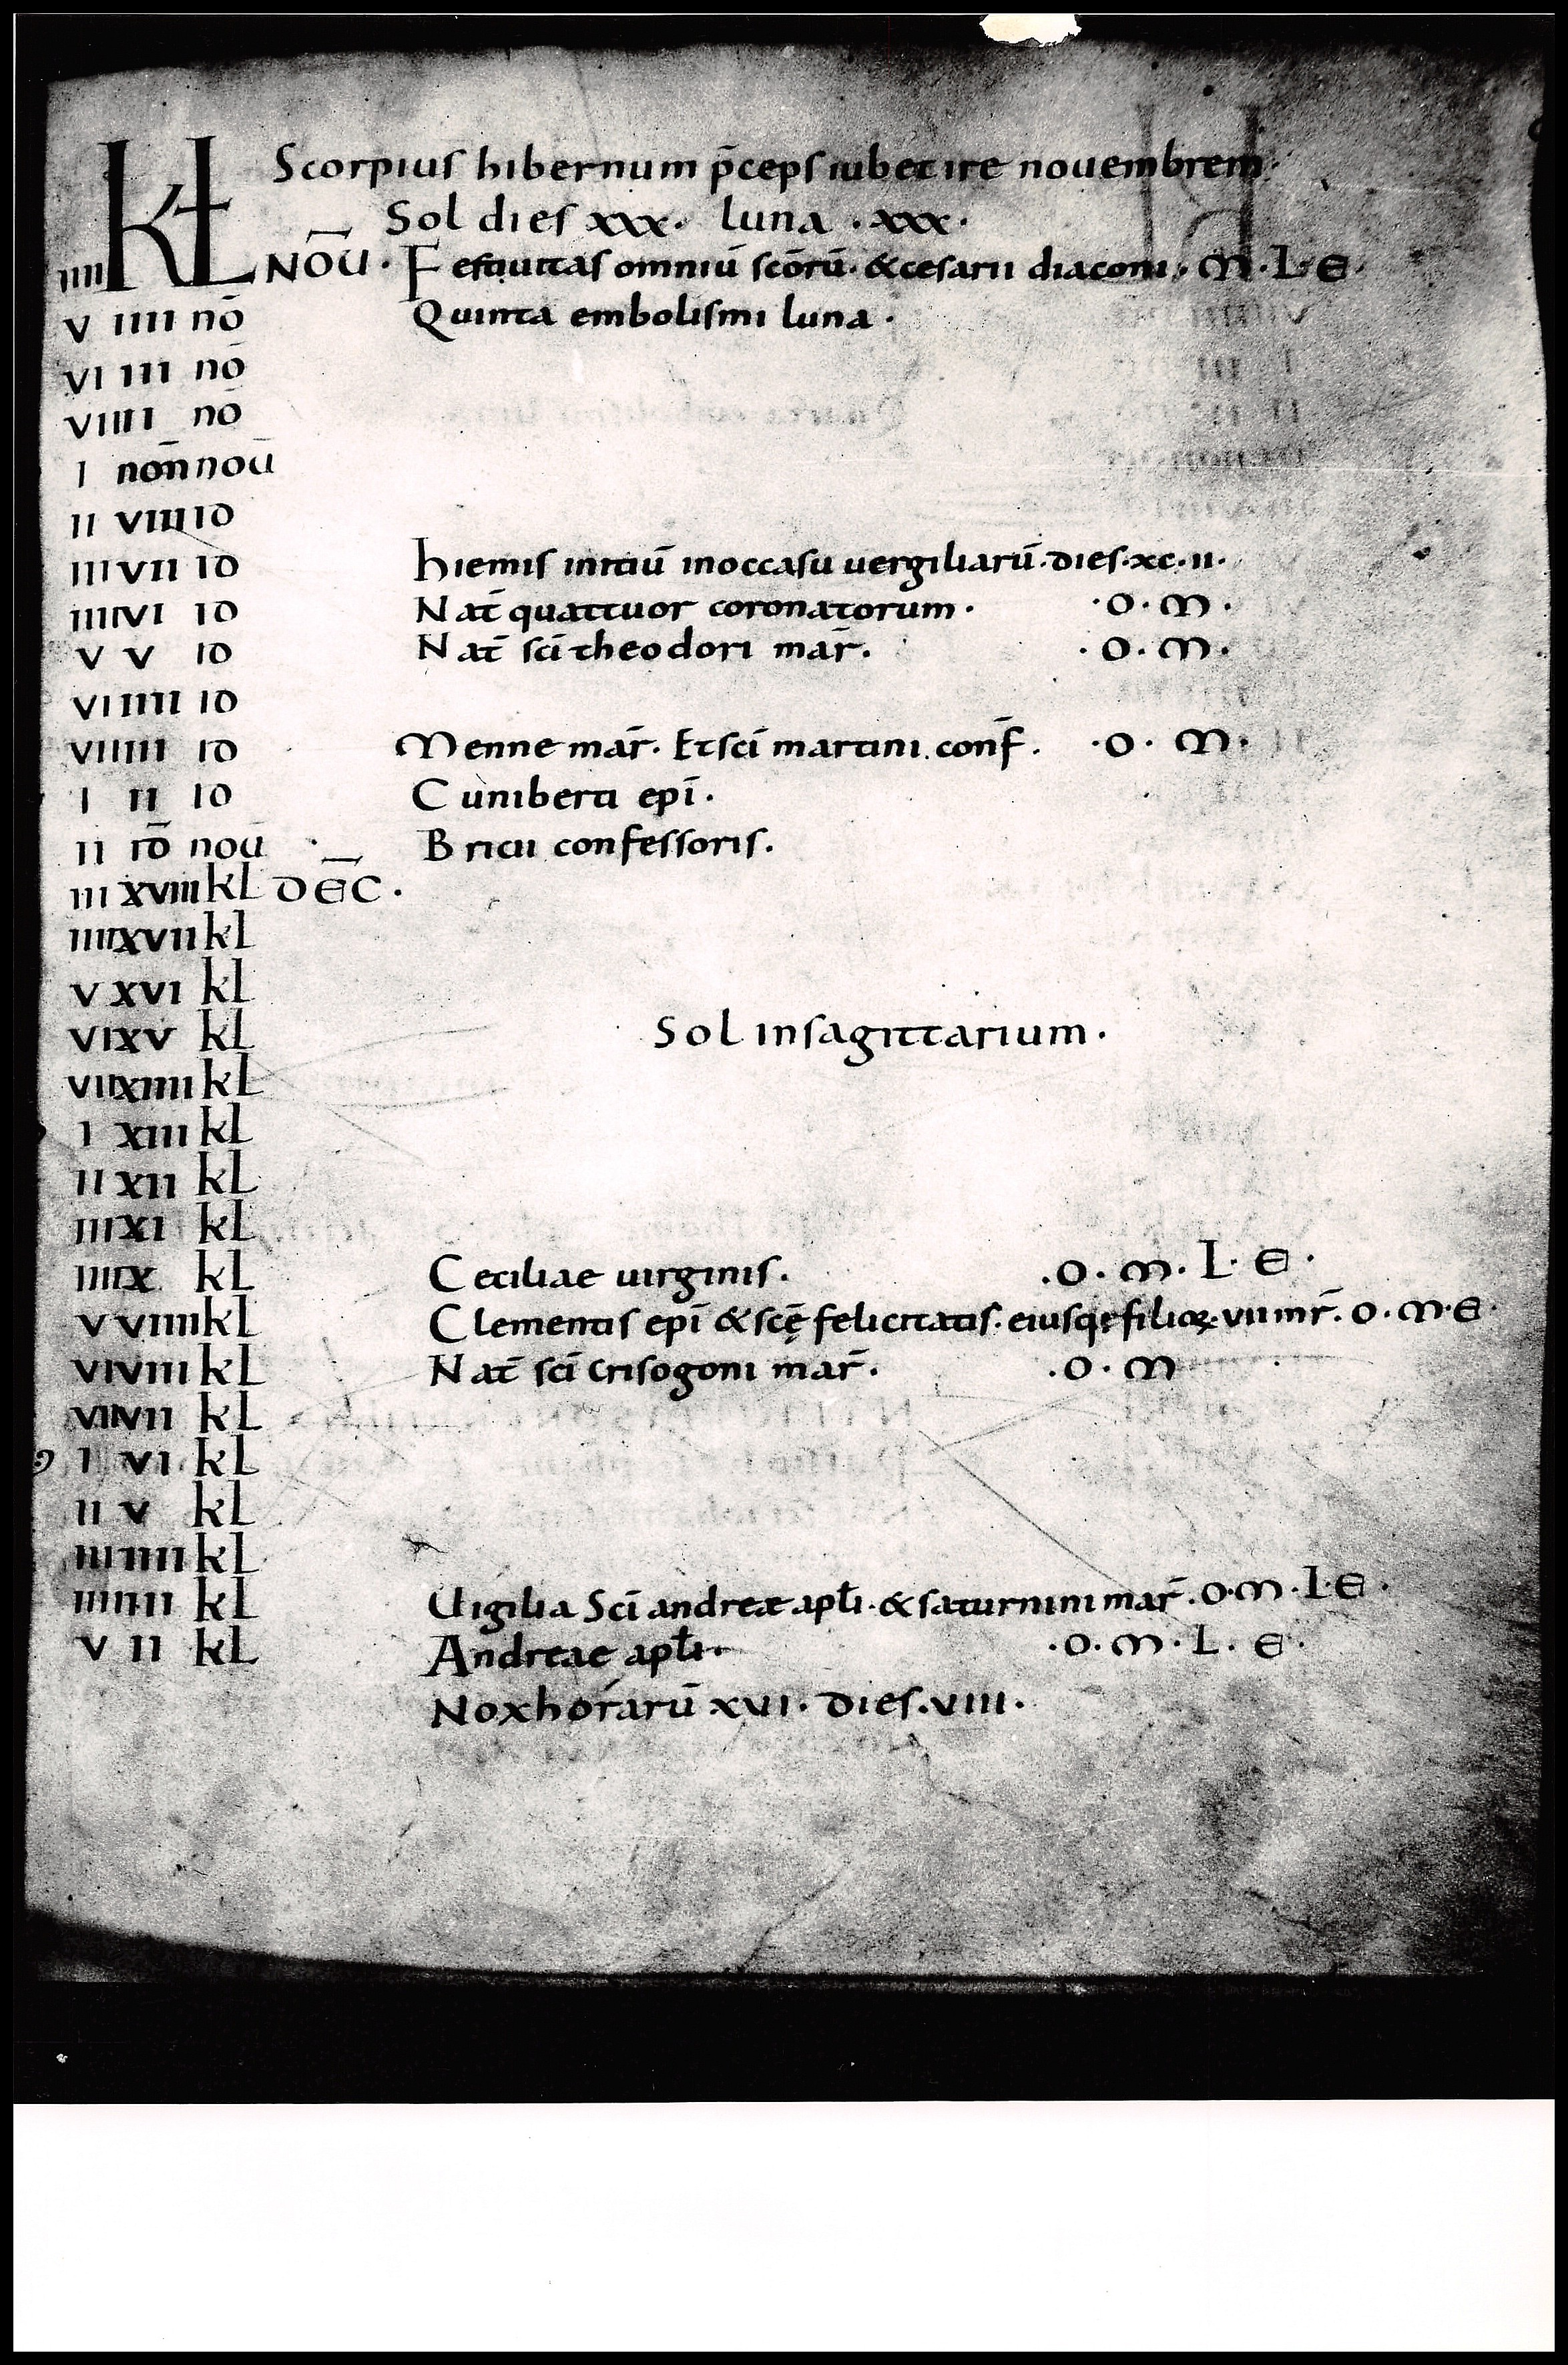 KL Scorpius hibernum p̄ceps iubet ire nouembrem·
Sol dies xxx· luna ·xxx·
iiii NOU̅· Festiuitas omniū scōrū· & cesarii diaconi· M·L·E·
v iiii nō Quinta embolismi luna·
vi iii nō
vii ii nō
i non̄ nou̅
ii viii id
iii vii id hiemis initiū in occasu uergiliarū· dies·xc·ii·
iiii vi id Nat̄ quattuor coronatorum· ·O·M·
v v id Nat̄ sc̄i theodori mar̄. ·O·M·
vi iiii id
vii iii id Menne mar̄· Et sc̄i martini conf̄. ·O·M·
i ii id Cuniberti epī·
ii id̄ nou̅ Bricii confessoris.
iii xviii kl DEC̅·
iiii xvii kl
v xvi kl
vi xv kl Sol in sagittarium·
vii xiiii kl
i xiii kl
ii xii kl
iii xi kl
iiii x kl Ceciliae uirginis. ·O·M·L·E·
v viiii kl Clementis epī & scę̄ felicitatis· eiusq; filioꝝ·vii mr̄. O·M·E·
vi viii kl Nat̄ sc̄i crisogoni mar̄. ·O·M
vii vii kl
i vi kl
ii v kl
iii iiii kl
iiii iii kl Uigilia Sc̄i andreæ apłi· & saturnini mar̄·O·M·L·E·
v ii kl Andreae apłi· ·O·M·L·E·
Nox horarū xvi· dies·viii·